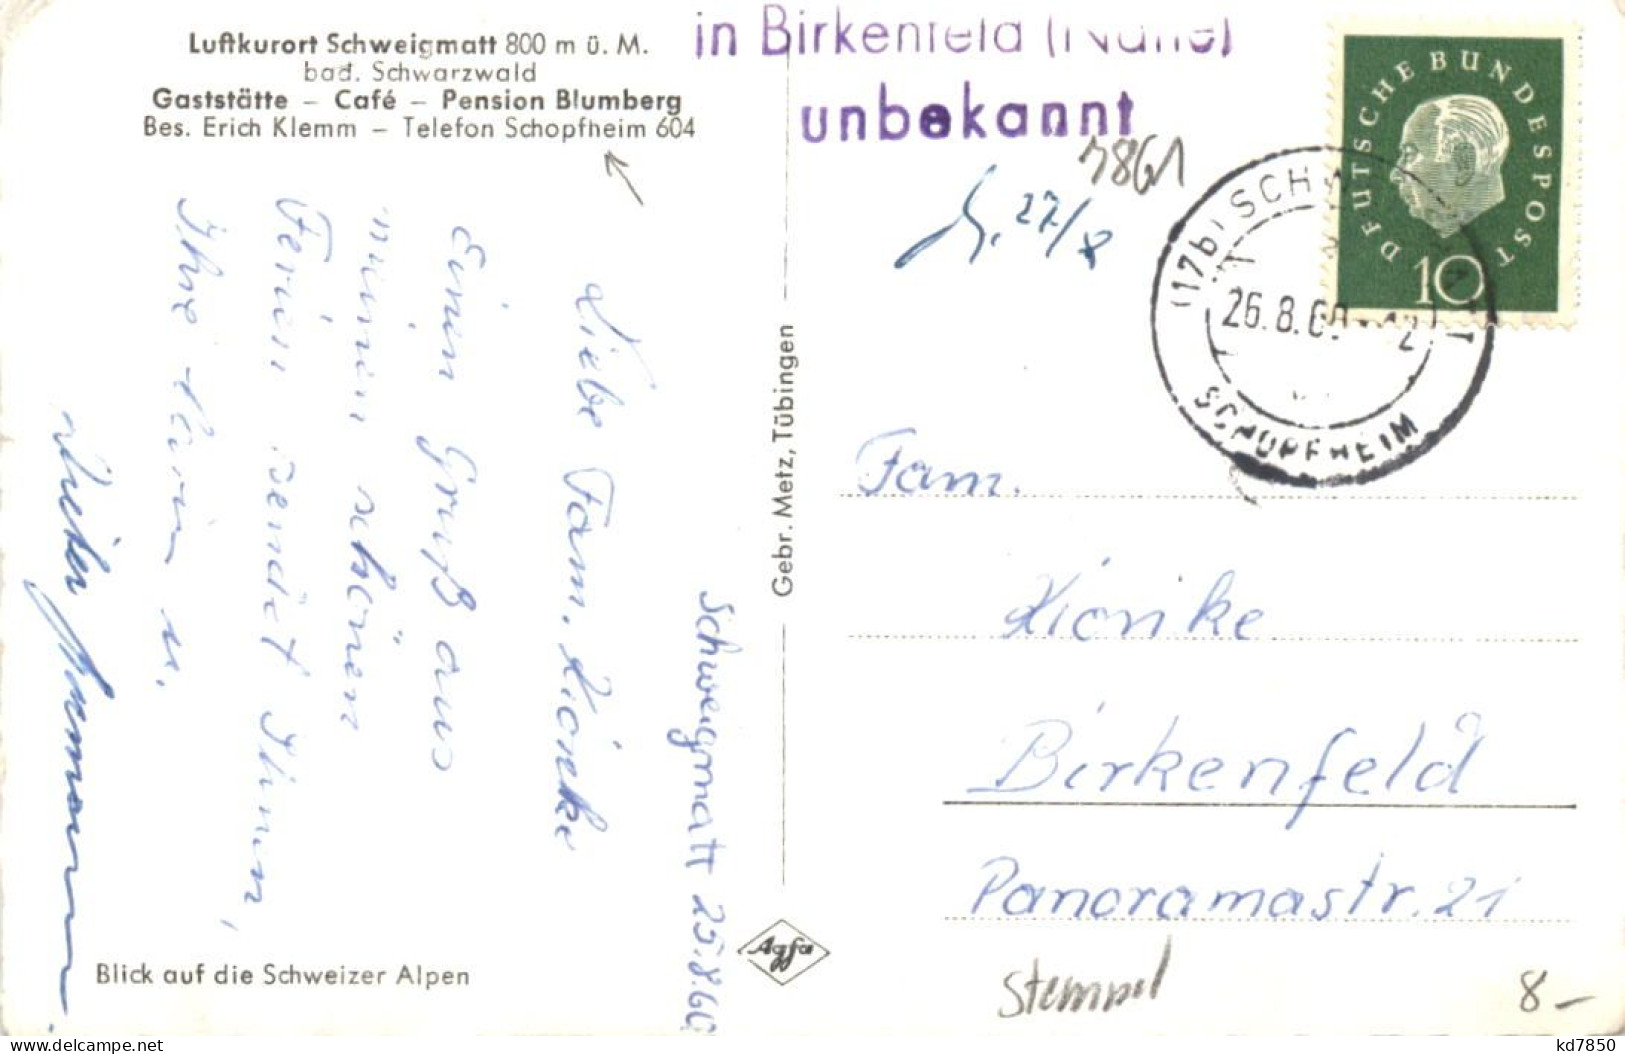 Luftkurort Schweigmatt 800 m ü. M.
bad. Schwarzwald
Gaststätte – Café – Pension Blumberg
Bes. Erich Klemm – Telefon Schopfheim 604
in Birkenfeld (Nahe)
unbekannt
7861
27/8
DEUTSCHE BUNDESPOST
10
(17b) SCH
26.8.60
12
SCHOPFHEIM
Schweigmatt 25.8.60
Liebe Fam. Kionke
Einen Gruß aus
meinen schönen
Ferien sendet Ihnen,
Ihre Karin u.
Gebr. Metz, Tübingen
Fam.
Kionke
Birkenfeld
Panoramastr. 21
Agfa
Blick auf die Schweizer Alpen
Stempel
8–
kd7850